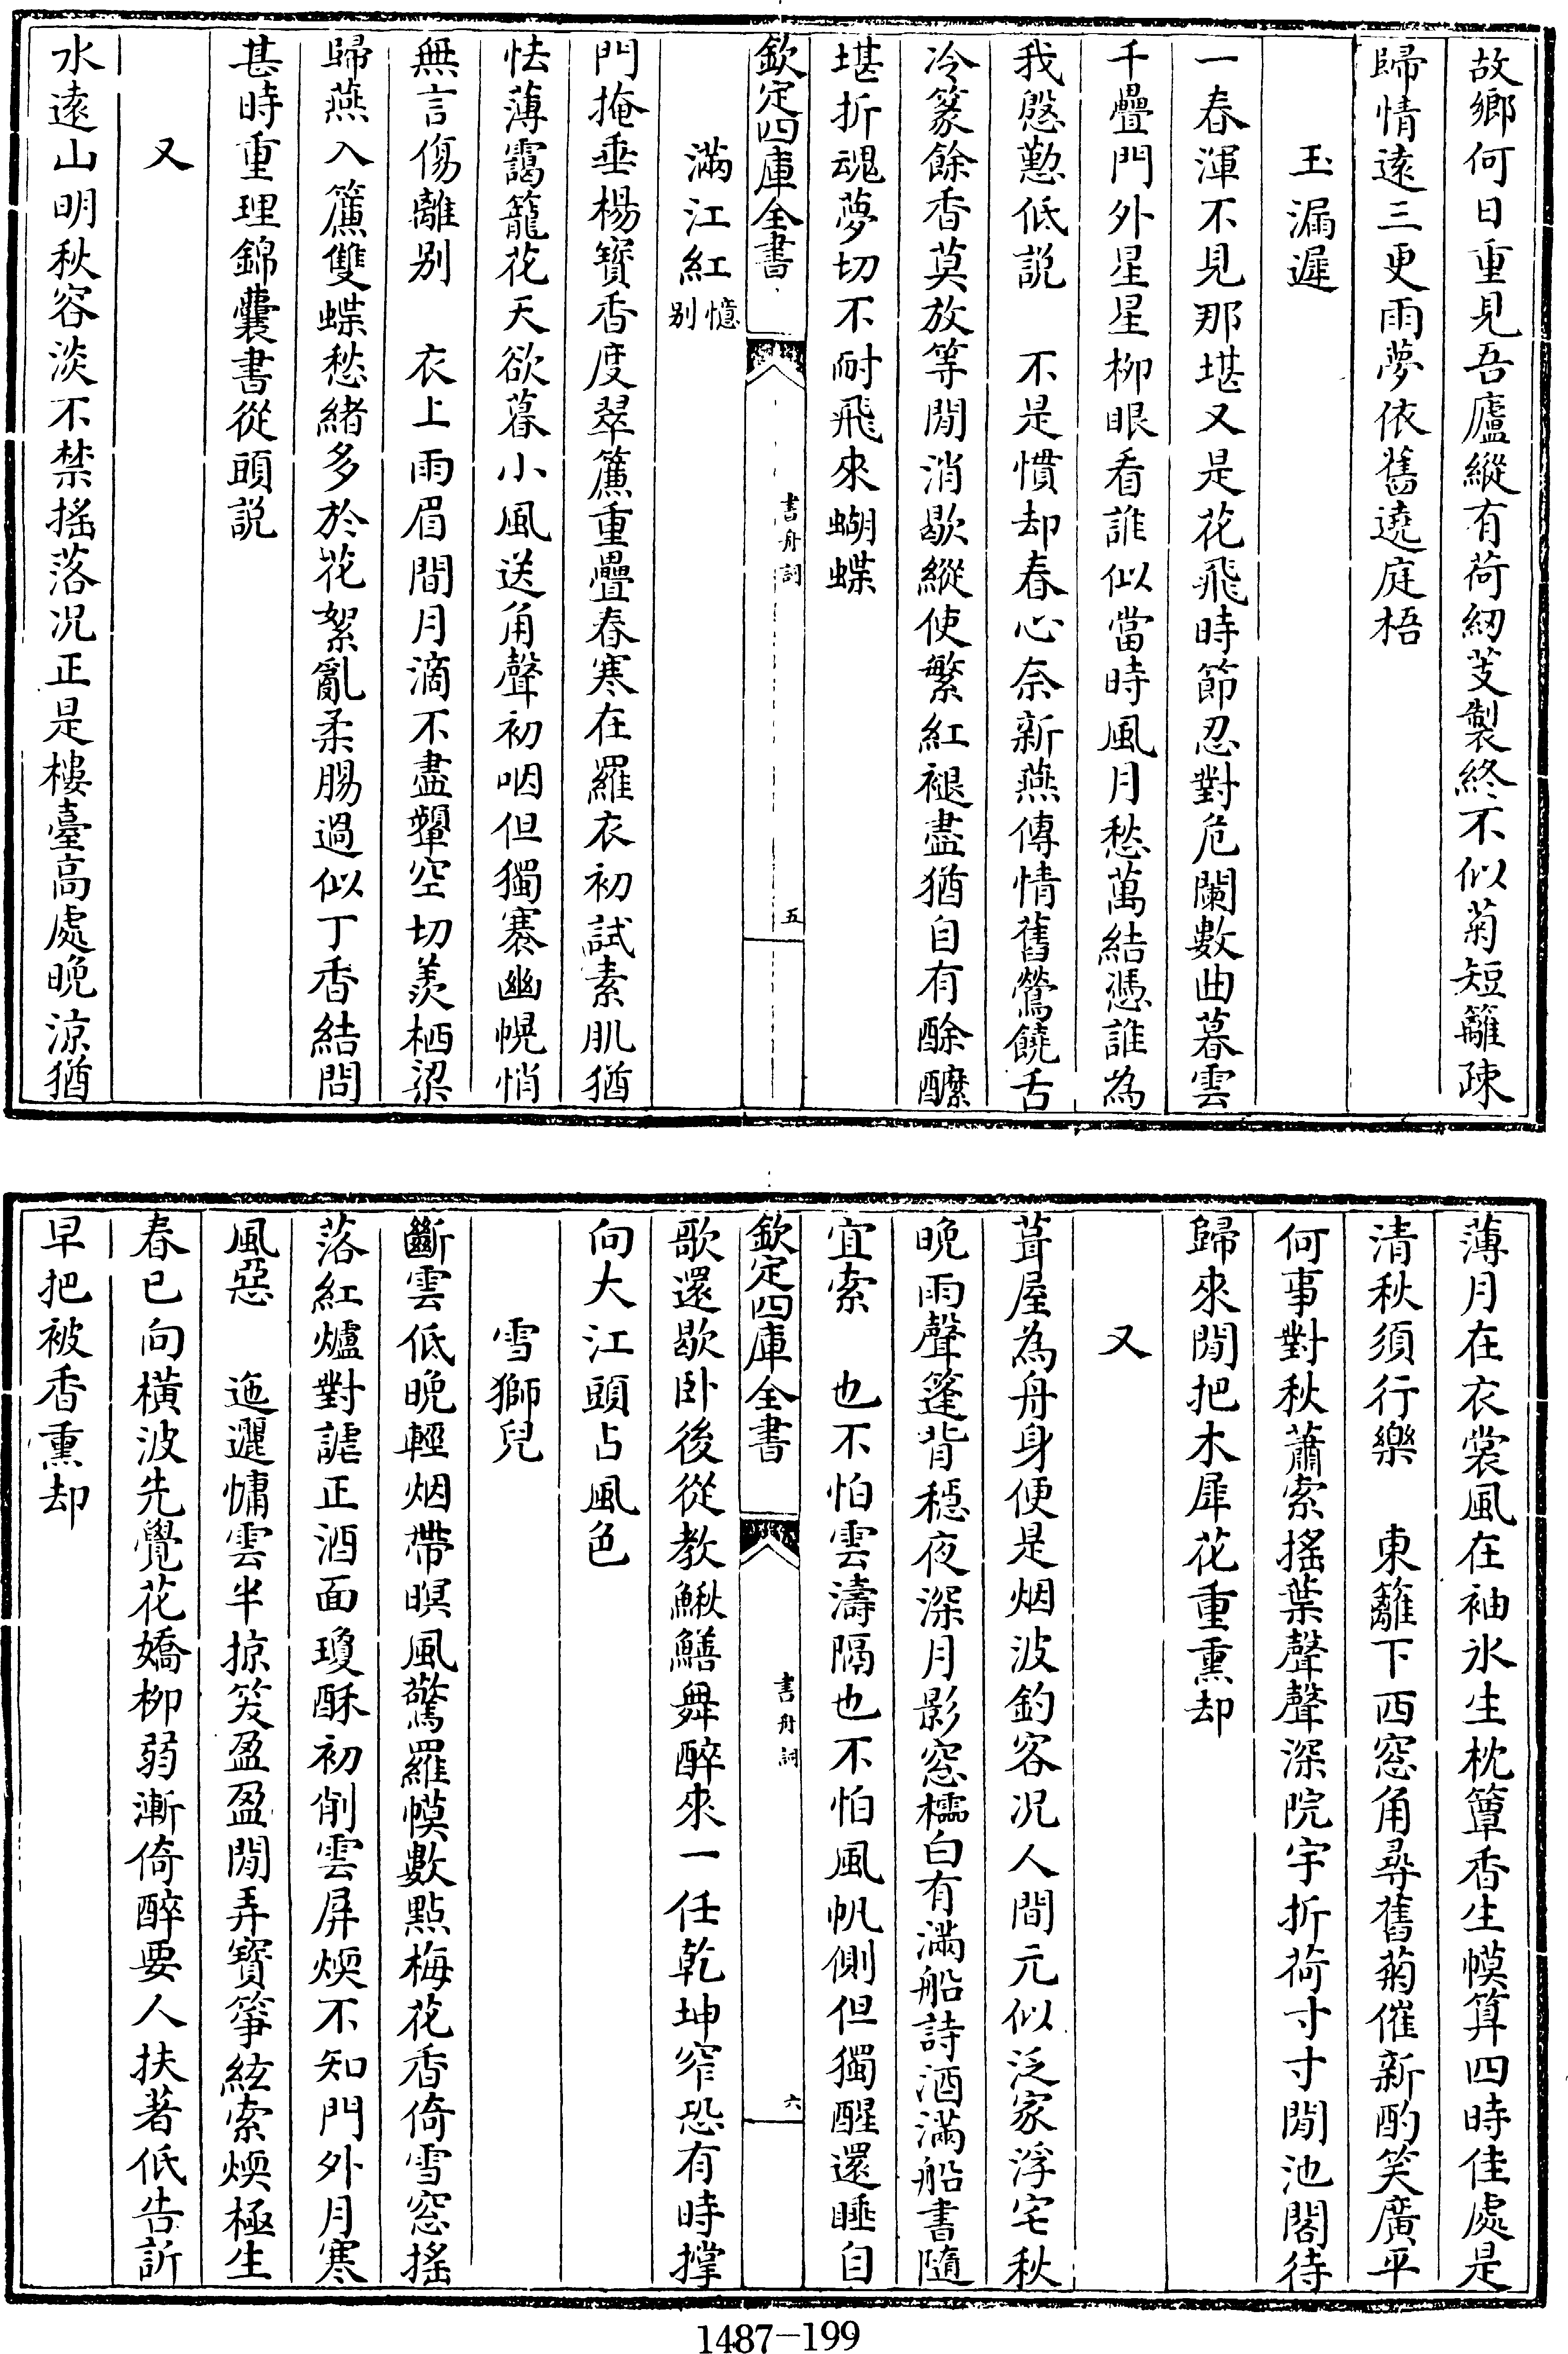 故鄉何日重見吾廬縱有荷紉芰製終不似菊短籬疎
歸情遠三更雨夢依舊遶庭梧
玉漏遲
一春渾不見那堪又是花飛時節忍對危闌數曲暮雲
千疊門外星星柳眼看誰似當時風月愁萬結憑誰為
我慇懃低説　不是慣却春心奈新燕傳情舊鶯饒舌
冷篆餘香莫放等閒消歇縱使繁紅褪盡猶自有酴醾
堪折魂夢切不耐飛來蝴蝶
欽定四庫全書
書舟詞
五
滿江紅憶别
門掩垂楊寳香度翠簾重疊春寒在羅衣初試素肌猶
怯薄靄籠花天欲暮小風送角聲初咽但獨褰幽幌悄
無言傷離别　衣上雨眉間月滴不盡顰空切羨栖梁
歸燕入簾雙蝶愁緒多於花絮亂柔腸過似丁香結問
甚時重理錦囊書從頭説
又
水遠山明秋容淡不禁摇落况正是樓臺高處晚涼猶
薄月在衣裳風在袖氷生枕簟香生幙算四時佳處是
清秋須行樂　東籬下西窓角尋舊菊催新酌笑廣平
何事對秋蕭索摇葉聲聲深院宇折荷寸寸閒池閣待
歸來閒把木犀花重熏却
又
葺屋為舟身便是烟波釣客况人間元似泛家浮宅秋
晚雨聲篷背穏夜深月影窓櫺白有滿船詩酒滿船書隨
宜索　也不怕雲濤隔也不怕風帆側但獨醒還睡自
欽定四庫全書
書舟詞
六
歌還歇卧後從教鰍鱔舞醉來一任乾坤窄恐有時撑
向大江頭占風色
雪獅兒
斷雲低晚輕烟帶暝風驚羅幙數點梅花香倚雪窓摇
落紅爐對謔正酒面瓊酥初削雲屏煗不知門外月寒
風惡　迤邐慵雲半掠笑盈盈閒弄寳箏絃索煗極生
春已向橫波先覺花嬌柳弱漸倚醉要人扶著低告訴
早把被香熏却
1487-199